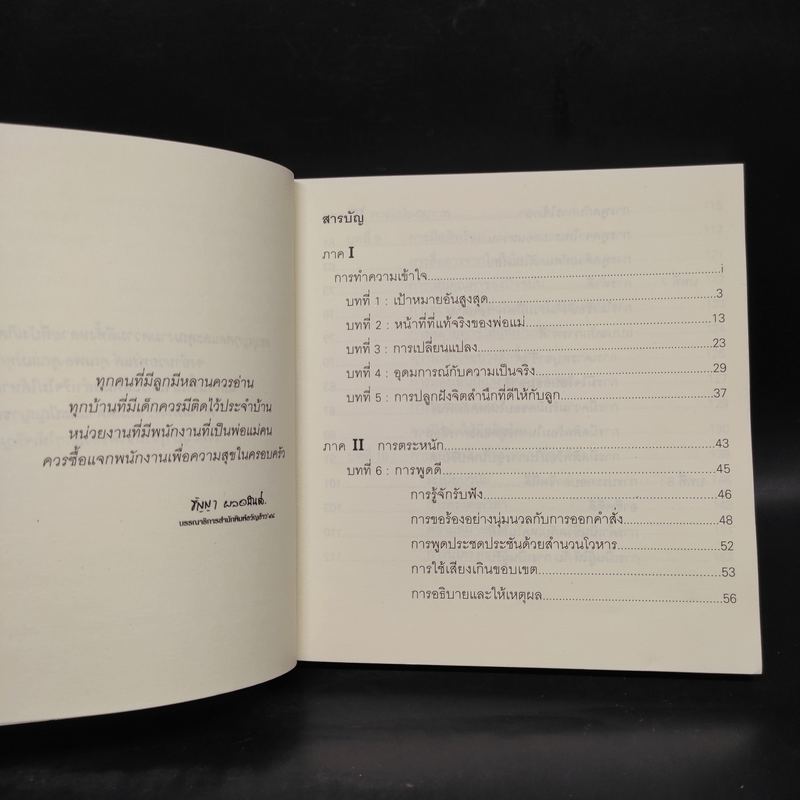 ทุกคนที่มีลูกมีหลานควรอ่าน
ทุกบ้านที่มีเด็กควรมีติดไว้ประจำบ้าน
หน่วยงานที่มีพนักงานที่เป็นพ่อแม่คน
ควรซื้อแจกพนักงานเพื่อความสุขในครอบครัว
บรรณาธิการสำนักพิมพ์ขวัญข้าว'๙๔
สารบัญ
ภาค I
การทำความเข้าใจ....................i
บทที่ 1 : เป้าหมายอันสูงสุด....................3
บทที่ 2 : หน้าที่ที่แท้จริงของพ่อแม่....................13
บทที่ 3 : การเปลี่ยนแปลง....................23
บทที่ 4 : อุดมการณ์กับความเป็นจริง....................29
บทที่ 5 : การปลูกฝังจิตสำนึกที่ดีให้กับลูก....................37
ภาค II การตระหนัก....................43
บทที่ 6 : การพูดดี....................45
การรู้จักรับฟัง....................46
การขอร้องอย่างนุ่มนวลกับการออกคำสั่ง....................48
การพูดประชดประชันด้วยสำนวนโวหาร....................52
การใช้เสียงเกินขอบเขต....................53
การอธิบายและให้เหตุผล....................56